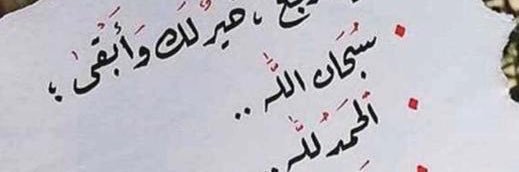 ، خيرٌ لَكَ وَأَبقىٰ ؛
سُبحَان اللّٰه ..
اَلحَمدُ للّٰه.